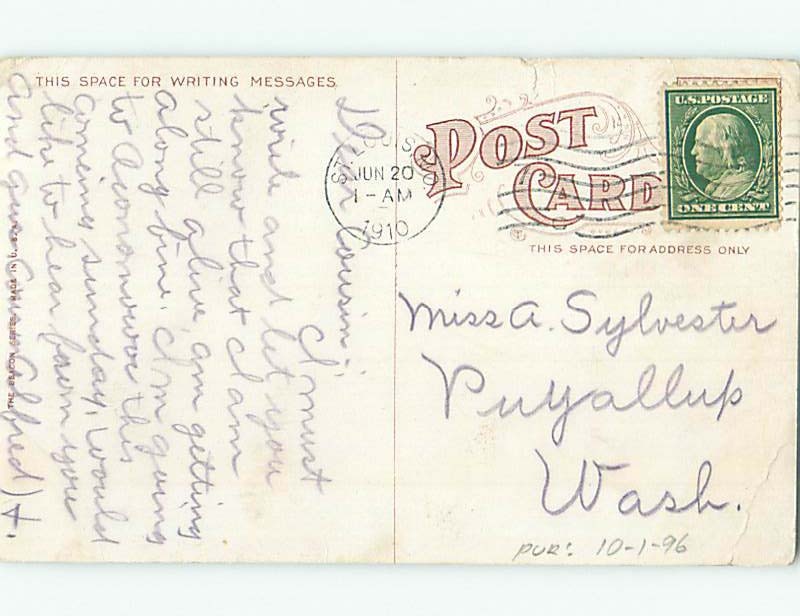 THIS SPACE FOR WRITING MESSAGES
Dear Cousin:-
I must
write and let you
know that I am
still alive, am getting
along fine. I'm going
to this
coming sunday, would
like to hear from you
Alfred H.
THE BEACON SERIES, MADE IN U. S. A.
POST
CARD
THIS SPACE FOR ADDRESS ONLY
ST. LOUIS
JUN 20
1 - AM
1910
U.S. POSTAGE
ONE CENT
Miss A. Sylvester
Puyallup
Wash.
pur: 10-1-96